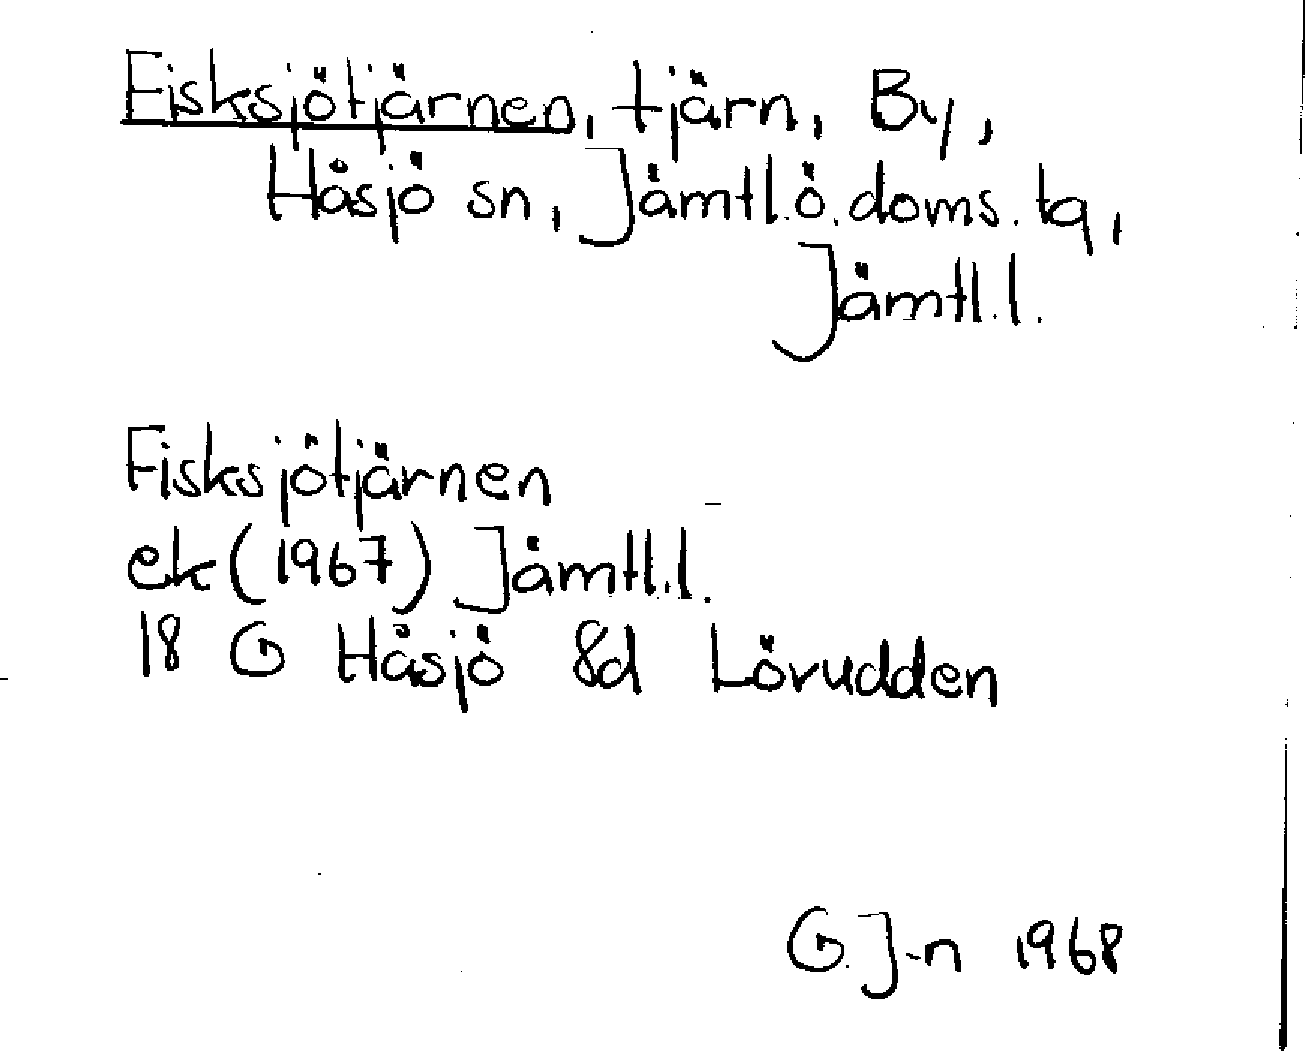 Fisksjötjärnen, tjärn, By,
Håsjö sn, Jämtl.ö.doms.tq,
Jämtl.l.
Fisksjötjärnen
ek(1967) Jämtl.l.
18 G Håsjö 8d Lövudden
G.J-n 1968